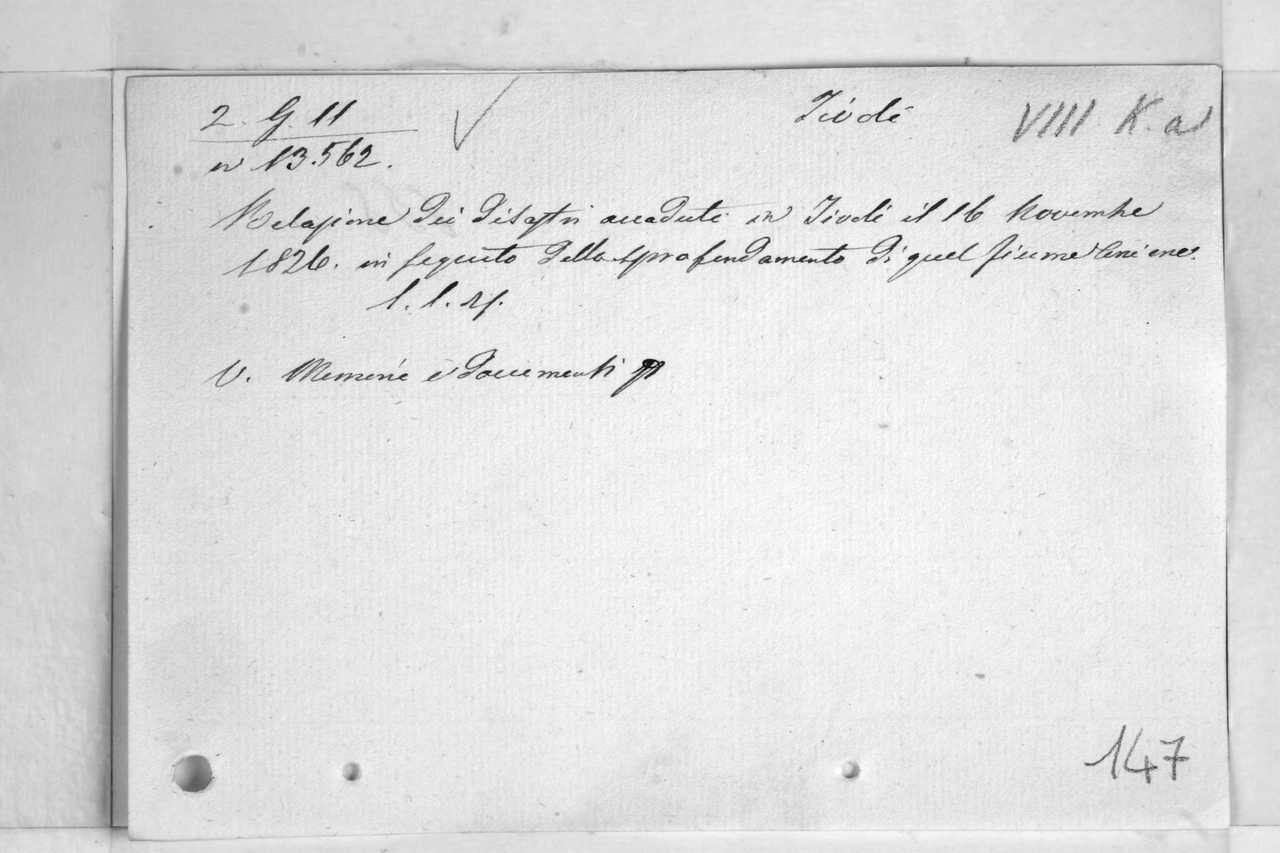 2. G. 11
Tivoli
VIII K. a
n 13.562.
Relazione dei disastri accaduti in Tivoli il 16 Novembre
1826. in seguito dello sprofondamento di quel fiume Aniene.
s. l. s.
V. Memorie e documenti
147